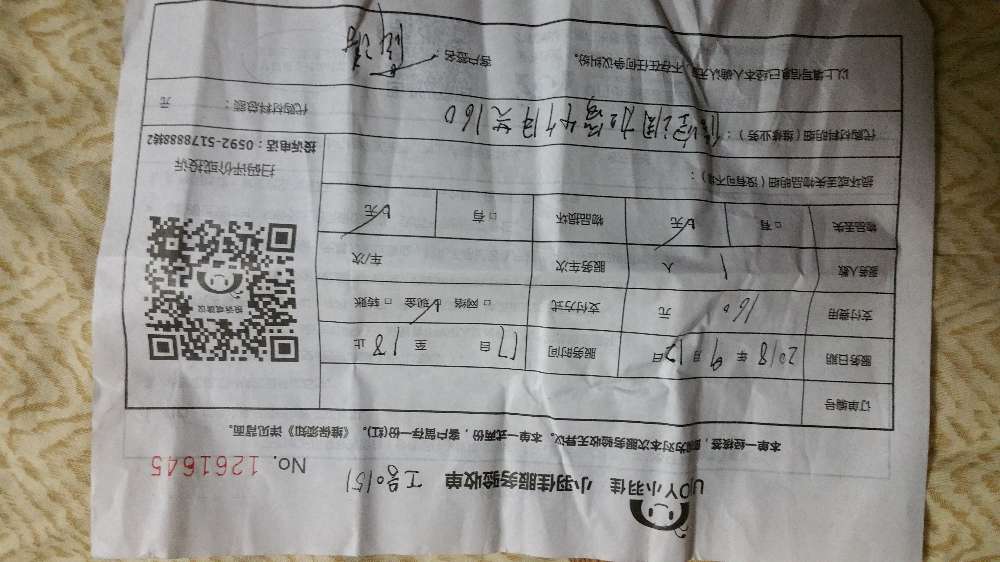 UOY小羽佳 小羽佳服务验收单 工号0151
No. 1261645
本单一经核签，视为对本次服务验收无异议。本单一式两份，客户留存一份(红)。《维保须知》详见背面。
订单编号
服务日期 2018 年 9 月 12 日 服务时间 17 自 至 18 止
支付费用 160 元 支付方式 □ 网络 ☑ 现金 □ 转账
服务人数 1 人 服务车次 车/次
物品丢失 □ 有 ☑ 无 物品损坏 □ 有 ☑ 无
投诉或建议
扫码评价或投诉
投诉电话：0592-5178888转2
损坏或丢失物品明细（没有可不填）：
代购材料明细（维修业务）：
160
代购材料总额： 元
以上填写信息已经本人确认无误，不存在任何争议纠纷。 客户签名：